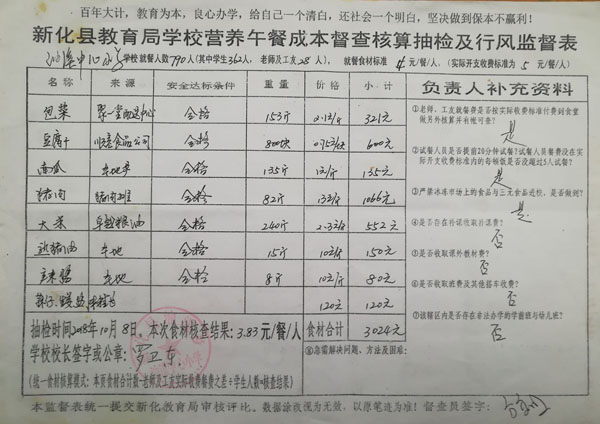 百年大计，教育为本，良心办学，给自己一个清白，还社会一个明白，坚决做到保本不赢利！
新化县教育局学校营养午餐成本督查核算抽检及行风监督表
学校就餐人数790人(其中学生362人，老师及工友28人)，就餐食材标准 4元/餐/人，(实际开支收费标准为 5 元/餐/人)
名称 来源 安全达标条件 数量 价格 小计 负责人补充资料
包菜 配送中心 合格 153斤 2.1元/斤 321元
豆腐干 食品公司 合格 800块 600元
南瓜 本地 合格 135斤 1元/斤 135元
猪肉 合格 82斤 13元/斤 1066元
大米 粮油 合格 240斤 2.3元/斤 552元
猪油 本地 合格 15斤 10元/斤 150元
本地 合格 8斤 10元/斤 80元
120元 120元
抽检时间2018年10月8日，本次食材核查结果：3.83元/餐/人 食材合计 3024元
学校校长签字或公章：
(统一食材核算模式：本页食材合计数-老师及工友实际缴费餐费之差÷学生人数=核查结果)
①老师、工友就餐费是否按实际收费标准付到食堂做另外核算并有账可查？
是
②试餐人员是否提前20分钟试餐？试餐人员餐费没在实际开支收费标准内的每顿饭是否没超过5人试餐？
是
③严禁冰冻市场上的食品与三无食品进校，是否做到？
是
④是否存在补课收取补课费？
否
⑤是否收取课外教材费？
否
⑥是否收取班费及其他搭车收费？
否
⑦该辖区内是否存在非法办学的学前班与幼儿班？
否
⑧急需解决问题、方法及困难：
本监督表统一提交新化教育局审核评比。数据涂改视为无效，以原笔迹为准！督查员签字：